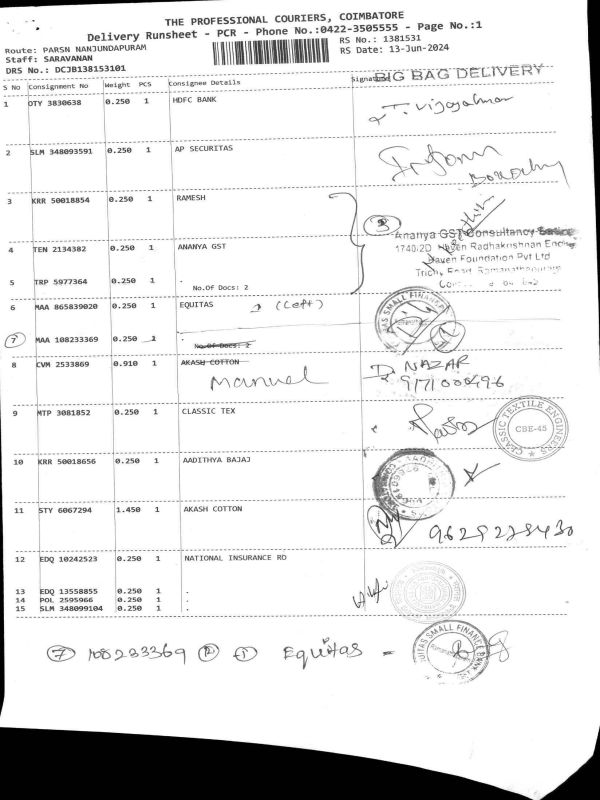 THE PROFESSIONAL COURIERS, COIMBATORE
Delivery Runsheet - PCR - Phone No.:0422-3505555 - Page No.:1
Route: PARSN NANJUNDAPURAM RS No.: 1381531
Staff: SARAVANAN RS Date: 13-Jun-2024
DRS No.: DCJB138153101
BIG BAG DELIVERY
S No Consignment No Weight PCS Consignee Details Signature
1 OTY 3830638 0.250 1 HDFC BANK
2 SLM 348093591 0.250 1 AP SECURITAS
3 KRR 50018854 0.250 1 RAMESH
3
Ananya GST Consultancy
4 TEN 2134382 0.250 1 ANANYA GST
1740/2D Haven Radhakrishnan
Haven Foundation Pvt Ltd
5 TRP 5977364 0.250 1 .
Trichy Road Ramanathapuram
No.Of Docs: 2
6 MAA 865839020 0.250 1 EQUITAS (Left)
7 MAA 108233369 0.250 1
No.Of Docs: 2
8 CVM 2533869 0.910 1 AKASH COTTON
Manuel
NAZAR
9171000496
9 MTP 3081852 0.250 1 CLASSIC TEX
CLASSIC TEXTILE ENGINEERS
CBE-45
10 KRR 50018656 0.250 1 AADITHYA BAJAJ
11 STY 6067294 1.450 1 AKASH COTTON
12 EDQ 10242523 0.250 1 NATIONAL INSURANCE RD
13 EDQ 13558855 0.250 1 .
14 POL 2595966 0.250 1 .
15 SLM 348099104 0.250 1 .
7 108233369 2 1 Equitas =
EQUITAS SMALL FINANCE BANK